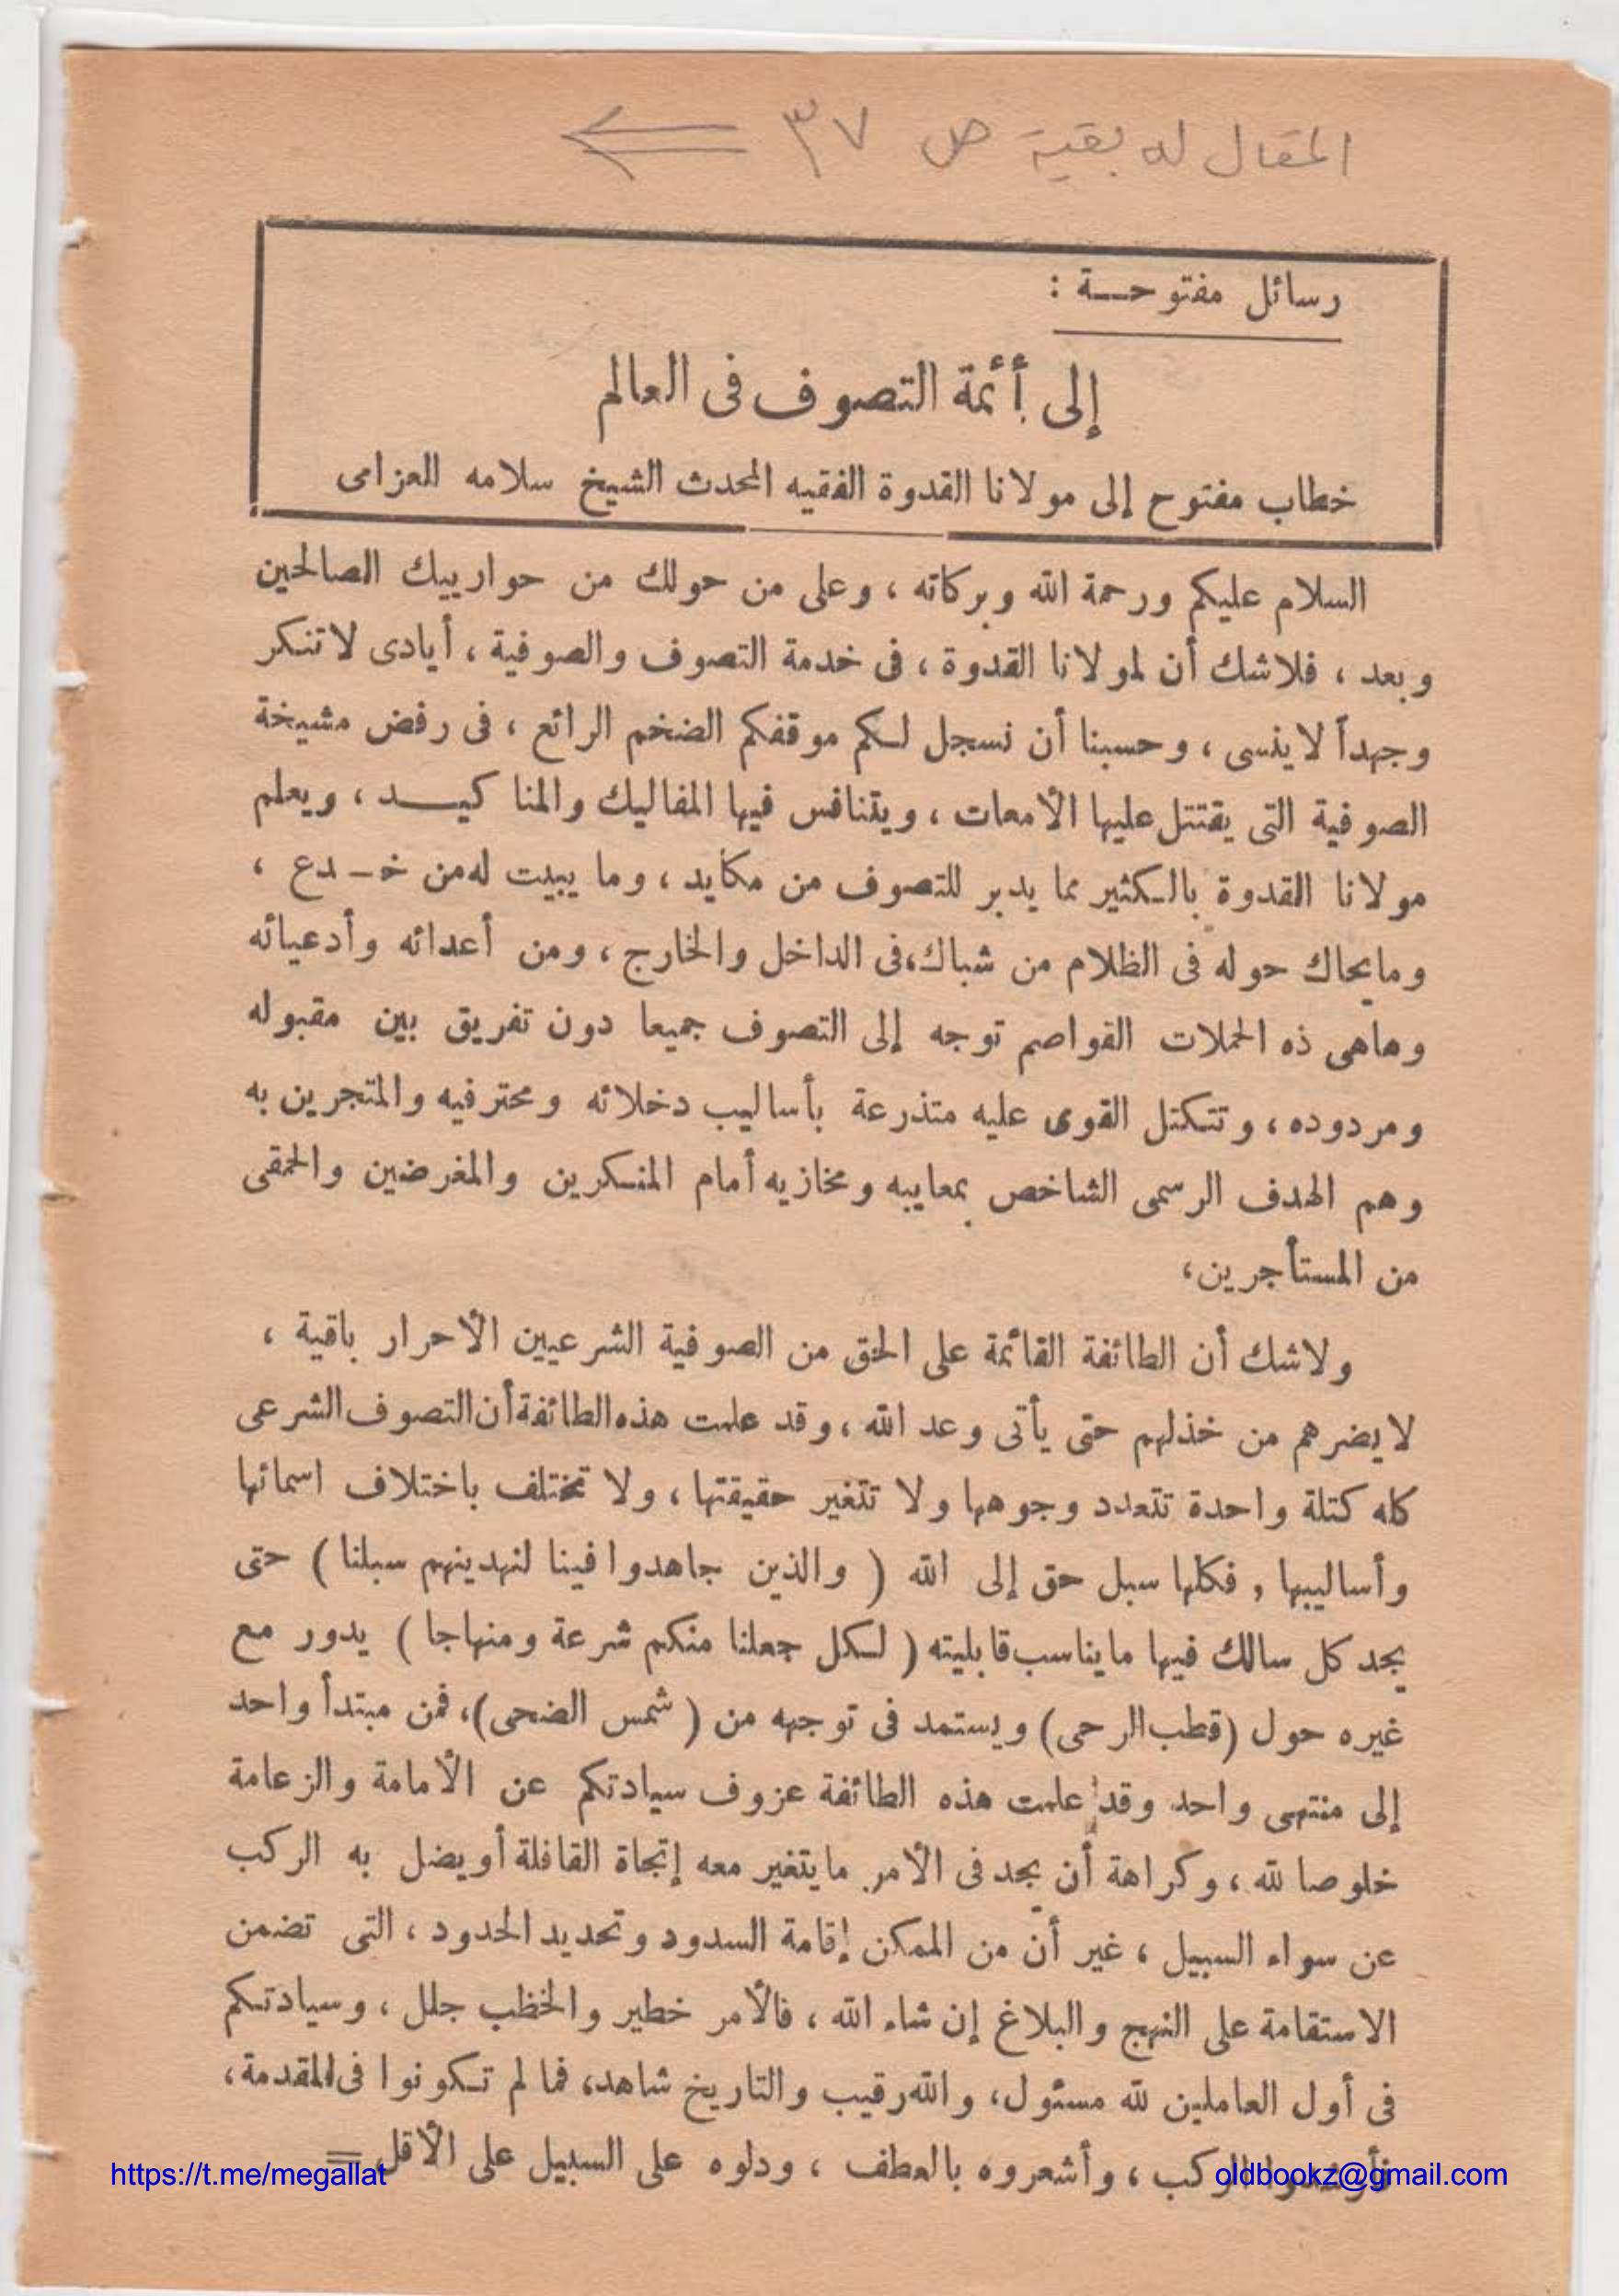 المقال له بقية ص ٣٧
رسائل مفتوحة :
إلى أئمة التصوف فى العالم
خطاب مفتوح إلى مولانا القدوة الفقيه المحدث الشيخ سلامه العزامى
السلام عليكم ورحمة الله وبركاته ، وعلى من حولك من حوارييك الصالحين
وبعد ، فلاشك أن لمولانا القدوة ، فى خدمة التصوف والصوفية ، أيادى لاتنكر
وجهداً لاينسى ، وحسبنا أن نسجل لكم موقفكم الضخم الرائع ، فى رفض مشيخة
الصوفية التى يقتتل عليها الأمعات ، ويتنافس فيها المفاليك والمناكيد ، ويعلم
مولانا القدوة بالكثير مما يدبر للتصوف من مكايد ، وما يبيت له من خدع ،
ومايحاك حوله فى الظلام من شباك ، فى الداخل والخارج ، ومن أعدائه وأدعيائه
وهاهى ذه الحملات القواصم توجه إلى التصوف جميعا دون تفريق بين مقبوله
ومردوده ، وتتكتل القوى عليه متذرعة بأساليب دخلائه ومحترفيه والمتجرين به
وهم الهدف الرسمى الشاخص بمعايبه ومخازيه أمام المنكرين والمغرضين والحمقى
من المستأجرين ،
ولاشك أن الطائفة القائمة على الحق من الصوفية الشرعيين الأحرار باقية ،
لايضرهم من خذلهم حتى يأتى وعد الله ، وقد علمت هذه الطائفة أن التصوف الشرعى
كله كتلة واحدة تتعدد وجوهها ولا تتغير حقيقتها ، ولا تختلف باختلاف اسمائها
وأساليبها , فكلها سبل حق إلى الله ( والذين جاهدوا فينا لنهدينهم سبلنا ) حتى
يجد كل سالك فيها مايناسب قابليته ( لكل جعلنا منكم شرعة ومنهاجا ) يدور مع
غيره حول (قطب الرحى) ويستمد فى توجهه من ( شمس الضحى) ، فمن مبتدأ واحد
إلى منتهى واحد وقد علمت هذه الطائفة عزوف سيادتكم عن الأمامة والزعامة
خلوصا لله ، وكراهة أن يجد فى الأمر مايتغير معه إتجاة القافلة أو يضل به الركب
عن سواء السبيل ، غير أن من الممكن إقامة السدود وتحديد الحدود ، التى تضمن
الاستقامة على النهج والبلاغ إن شاء الله ، فالأمر خطير والخظب جلل ، وسيادتكم
فى أول العاملين لله مسئول ، والله رقيب والتاريخ شاهد ، فما لم تكونوا فى المقدمة ،
الركب ، وأشعروه بالعطف ، ودلوه على السبيل على الأقل =
https://t.me/megallat
oldbookz@gmail.com